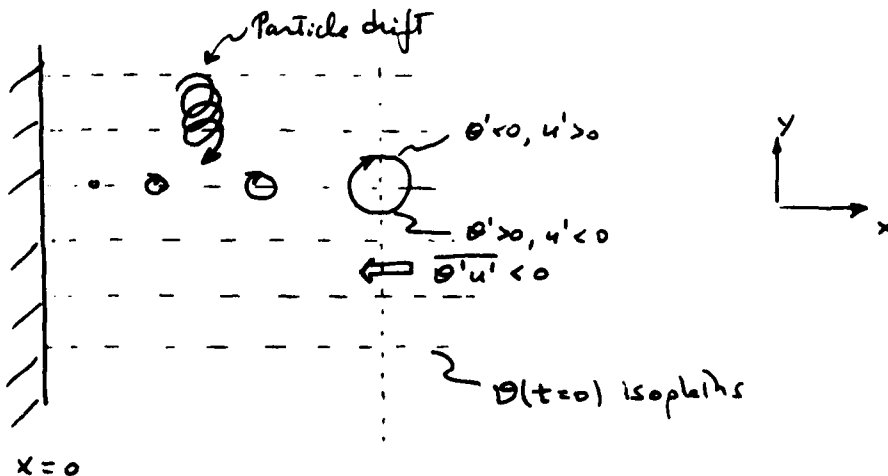 Particle drift
θ'<0, u'>0
y
x
θ'>0, u'<0
θ'u' < 0
θ(t=0) isopleths
x = 0